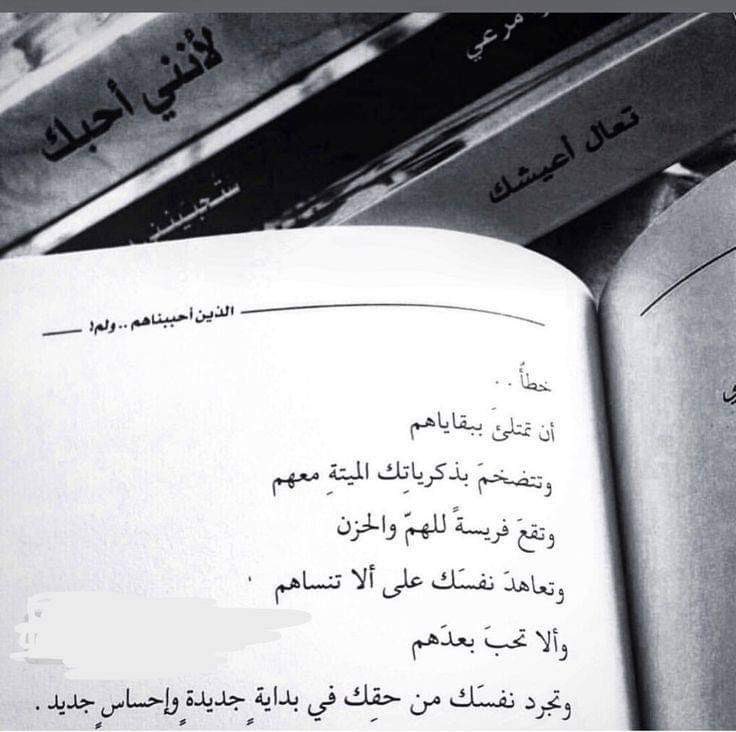 لأنني أحبك
مرعي
تعال أعيشك
ستجيئينني
الذين أحببناهم .. ولم!
خطأٌ ..
أن تمتلئَ ببقاياهم
وتتضخمَ بذكرياتِك الميتةِ معهم
وتقعَ فريسةً للهمّ والحزن
وتعاهدَ نفسَك على ألا تنساهم
وألا تحبَ بعدَهم
وتجرد نفسَك من حقِك في بدايةٍ جديدةٍ وإحساسٍ جديد .